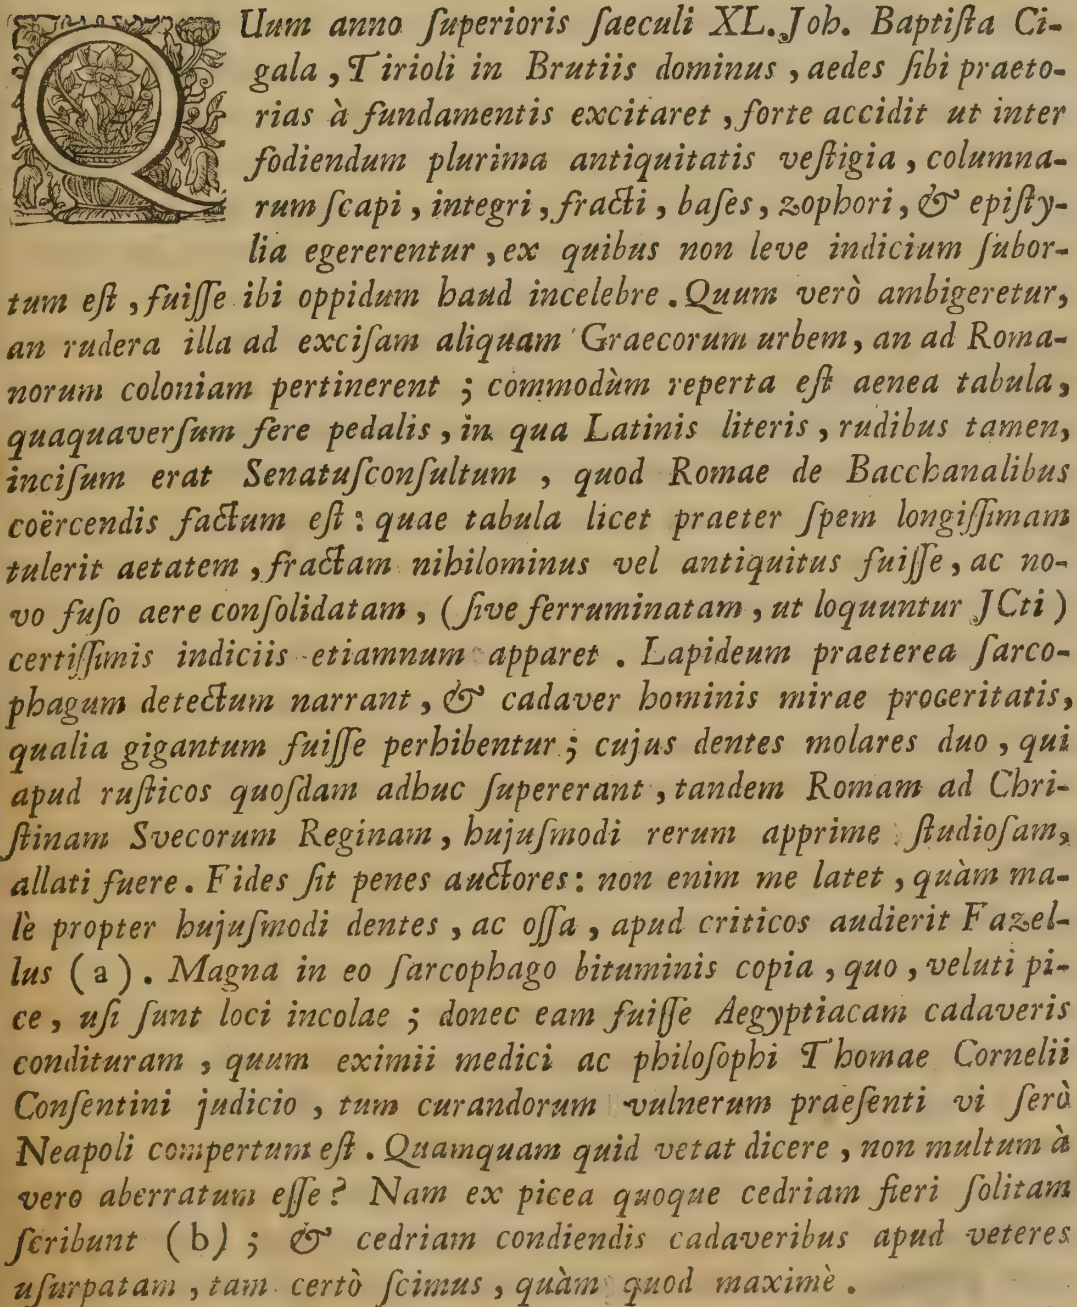 QUum anno ſuperioris ſaeculi XL. Joh. Baptiſta Ci-
gala , Tirioli in Brutiis dominus , aedes ſibi praeto-
rias à fundamentis excitaret , forte accidit ut inter
fodiendum plurima antiquitatis veſtigia , columna-
rum ſcapi , integri , fracti , baſes , zophori , & epiſty-
lia egererentur , ex quibus non leve indicium ſubor-
tum eſt , fuiſſe ibi oppidum haud incelebre . Quum verò ambigeretur,
an rudera illa ad exciſam aliquam Graecorum urbem , an ad Roma-
norum coloniam pertinerent ; commodùm reperta eſt aenea tabula,
quaquaverſum fere pedalis , in qua Latinis literis , rudibus tamen,
inciſum erat Senatuſconſultum , quod Romae de Bacchanalibus
coërcendis factum eſt : quae tabula licet praeter ſpem longiſſimam
tulerit aetatem , fractam nihilominus vel antiquitus fuiſſe , ac no-
vo fuſo aere conſolidatam , ( ſive ferruminatam , ut loquuntur JCti )
certiſſimis indiciis etiamnum apparet . Lapideum praeterea ſarco-
phagum detectum narrant , & cadaver hominis mirae proceritatis,
qualia gigantum fuiſſe perhibentur ; cujus dentes molares duo , qui
apud ruſticos quoſdam adhuc ſupererant , tandem Romam ad Chri-
ſtinam Svecorum Reginam , hujuſmodi rerum apprime ſtudioſam,
allati fuere . Fides ſit penes auctores : non enim me latet , quàm ma-
lè propter hujuſmodi dentes , ac oſſa , apud criticos audierit Fazel-
lus ( a ) . Magna in eo ſarcophago bituminis copia , quo , veluti pi-
ce , uſi ſunt loci incolae ; donec eam fuiſſe Aegyptiacam cadaveris
condituram , quum eximii medici ac philoſophi Thomae Cornelii
Conſentini judicio , tum curandorum vulnerum praeſenti vi ſerò
Neapoli compertum eſt . Quamquam quid vetat dicere , non multum à
vero aberratum eſſe ? Nam ex picea quoque cedriam fieri ſolitam
ſcribunt ( b ) ; & cedriam condiendis cadaveribus apud veteres
uſurpatam , tam certò ſcimus , quàm quod maximè .